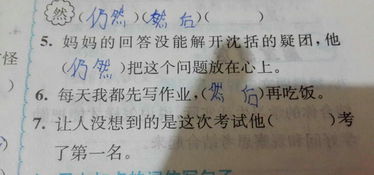 然 (仍然)(然后)( )
5. 妈妈的回答没能解开沈括的疑团,他
(仍然)把这个问题放在心上。
6. 每天我都先写作业,(然后)再吃饭。
7. 让人没想到的是这次考试他( )考
了第一名。